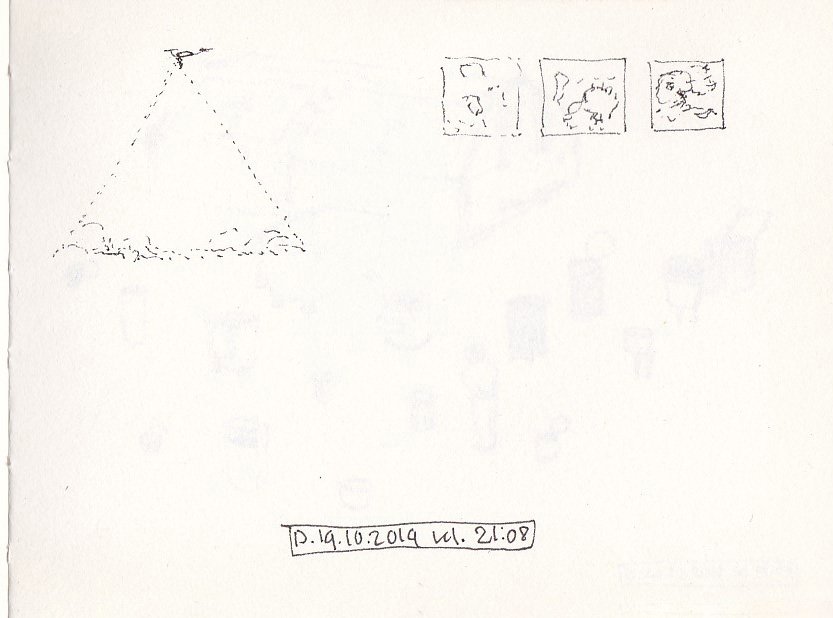 D. 19.10.2019 kl. 21:08